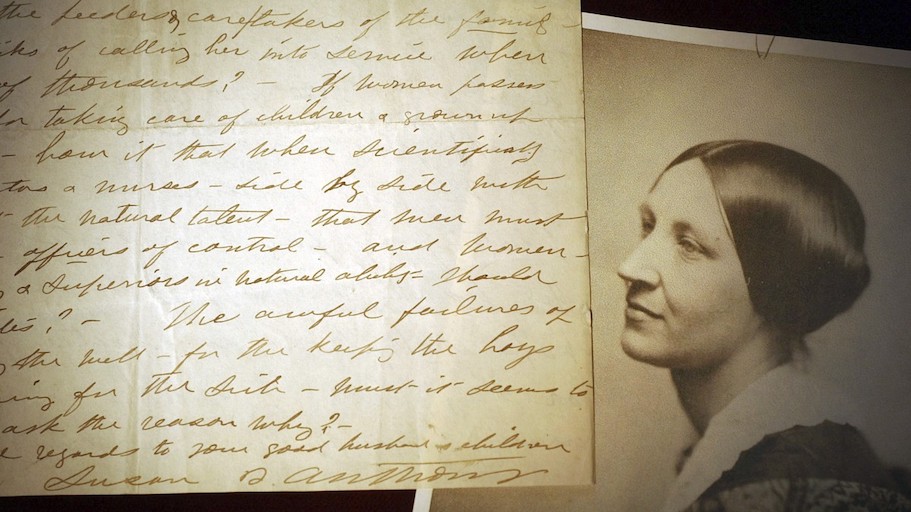 the feeders & caretakers of the family -
of calling her into service when
of thousands? - If women possess
for taking care of children & grown up
- how it that when scientifically
& nurses - side by side with
the natural talent - that men must
- officers of control - and women -
& superiors in natural ability - should
? - The awful failures of
the well - for the keeping the boys
for the sick - must it seems to
ask the reason why? -
regards to your good husband & children
Susan B. Anthony